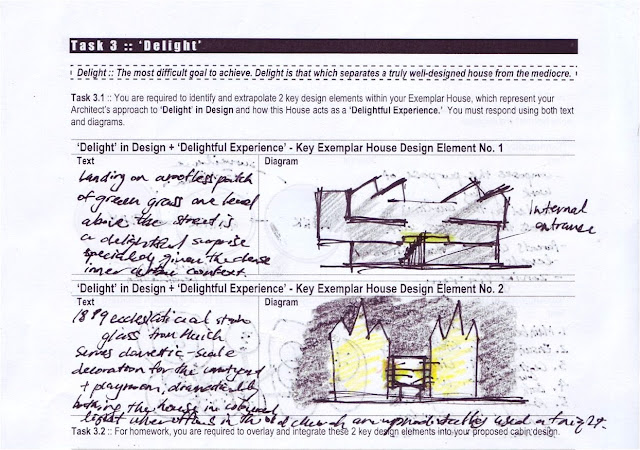 Task 3 :: 'Delight'
Delight :: The most difficult goal to achieve. Delight is that which separates a truly well-designed house from the mediocre.
Task 3.1 :: You are required to identify and extrapolate 2 key design elements within your Exemplar House, which represent your
Architect's approach to 'Delight' in Design and how this House acts as a 'Delightful Experience.' You must respond using both text
and diagrams.
'Delight' in Design + 'Delightful Experience' - Key Exemplar House Design Element No. 1
Text
Diagram
Landing on a roofless patch
of green grass one level
above the street is
a delightful surprise
especially given the dense
inner urban context.
Internal
entrance
'Delight' in Design + 'Delightful Experience' - Key Exemplar House Design Element No. 2
Text
Diagram
glass from
serves domestic-scale
decoration for the courtyard
+ playroom, dramatically
bathing the house in coloured
light when in the church are used at night.
Task 3.2 :: For homework, you are required to overlay and integrate these 2 key design elements into your proposed cabin design.